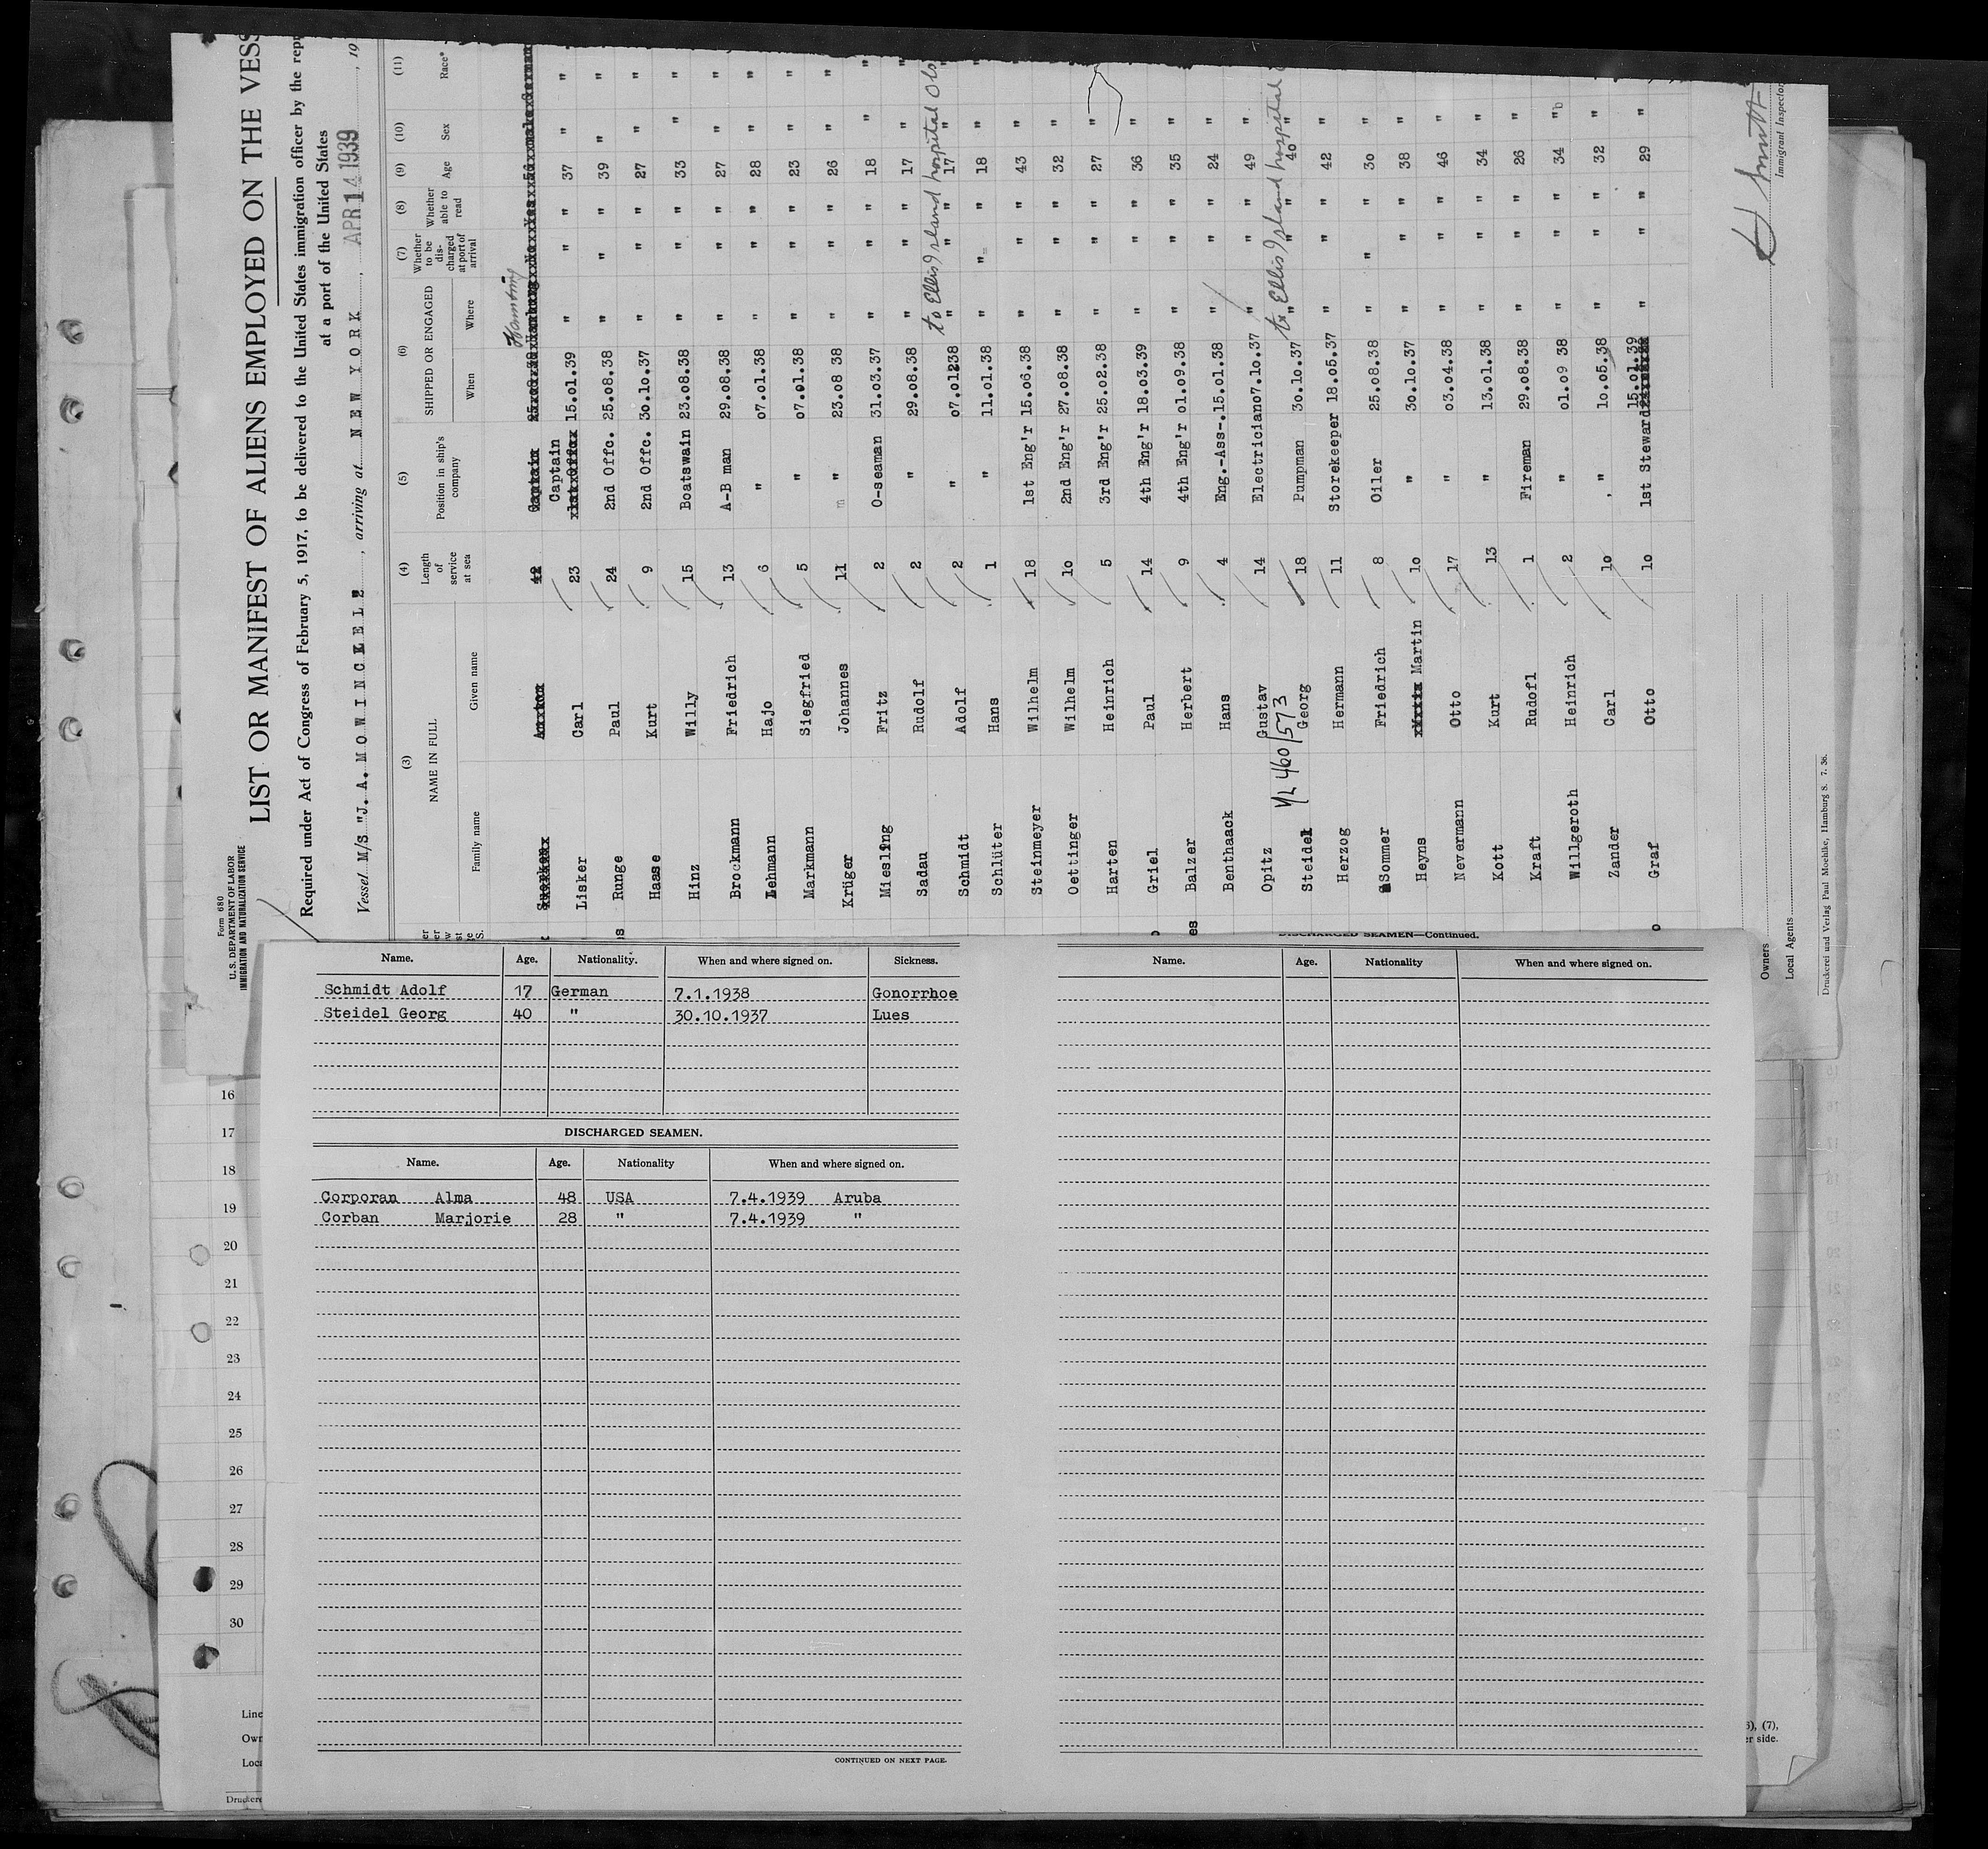 Form 680
U. S. DEPARTMENT OF LABOR
IMMIGRATION AND NATURALIZATION SERVICE
LIST OR MANIFEST OF ALIENS EMPLOYED ON THE VESS
Required under Act of Congress of February 5, 1917, to be delivered to the United States immigration officer by the repr
at a port of the United States
Vessel M/S "J. A. MOWINCKEL" , arriving at NEW YORK , APR 14 1939 , 19
(3) (4) (5) (6) (7) (8) (9) (10) (11)
NAME IN FULL Length of service at sea Position in ship's company SHIPPED OR ENGAGED Whether to be dis- charged at port of arrival Whether able to read Age Sex Race*
Family name Given name When Where
42 Captain
Lisker Carl 23 Captain 15.01.39 " " " 37 " "
Runge Paul 24 2nd Offc. 25.08.38 " " " 39 " "
Haase Kurt 9 2nd Offc. 30.10.37 " " " 27 " "
Hinz Willy 15 Boatswain 23.08.38 " " " 33 " "
Brockmann Friedrich 13 A-B man 29.08.38 " " " 27 " "
Lehmann Hajo 6 " 07.01.38 " " " 28 " "
Markmann Siegfried 5 " 07.01.38 " " " 23 " "
Krüger Johannes 11 " 23.08 38 " " " 26 " "
Miesling Fritz 2 O-seaman 31.03.37 " " " 18 " "
Sadau Rudolf 2 " 29.08.38 " " " 17 " "
to Ellis Island hospital Obs
Schmidt Adolf 2 " 07.01238 " " " 17 " "
Schlüter Hans 1 " 11.01.38 " " " 18 " "
Steinmeyer Wilhelm 18 1st Eng'r 15.06.38 " " " 43 " "
Oettinger Wilhelm 10 2nd Eng'r 27.08.38 " " " 32 " "
Harten Heinrich 5 3rd Eng'r 25.02.38 " " " 27 " "
Griel Paul 14 4th Eng'r 18.03.39 " " " 36 " "
Balzer Herbert 9 4th Eng'r 01.09.38 " " " 35 " "
Benthaack Hans 4 Eng.-Ass-.15.01.38 " " " 24 " "
Opitz Gustav 14 Electrician07.10.37 " " " 49 " "
460/573 to Ellis Island hospital
Steidel Georg 18 Pumpman 30.10.37 " " " 40 " "
Herzog Hermann 11 Storekeeper 18.05.37 " " " 42 " "
Sommer Friedrich 8 Oiler 25.08.38 " " " 30 " "
Heyns Martin 10 " 30.10.37 " " " 38 " "
Nevermann Otto 17 " 03.04.38 " " " 46 " "
Kott Kurt 13 " 13.01.38 " " " 34 " "
Kraft Rudofl 1 Fireman 29.08.38 " " " 26 " "
Willgeroth Heinrich 2 " 01.09 38 " " " 34 " "
Zander Carl 10 " 10.05.38 " " " 32 " "
Graf Otto 10 1st Steward 15.01.39 " " " 29 " "
Immigrant Inspector
Owners
Local Agents
Druckerei und Verlag Paul Moehlke, Hamburg S. 7. 36.
Name. Age. Nationality. When and where signed on. Sickness.
Schmidt Adolf 17 German 7.1.1938 Gonorrhoe
Steidel Georg 40 " 30.10.1937 Lues
DISCHARGED SEAMEN.
Name. Age. Nationality When and where signed on.
Corporan Alma 48 USA 7.4.1939 Aruba
Corban Marjorie 28 " 7.4.1939 "
CONTINUED ON NEXT PAGE.
DISCHARGED SEAMEN—Continued.
Name. Age. Nationality When and where signed on.
16
17
18
19
20
21
22
23
24
25
26
27
28
29
30
Line
Own
Loca
Drucker
(7),
er side.